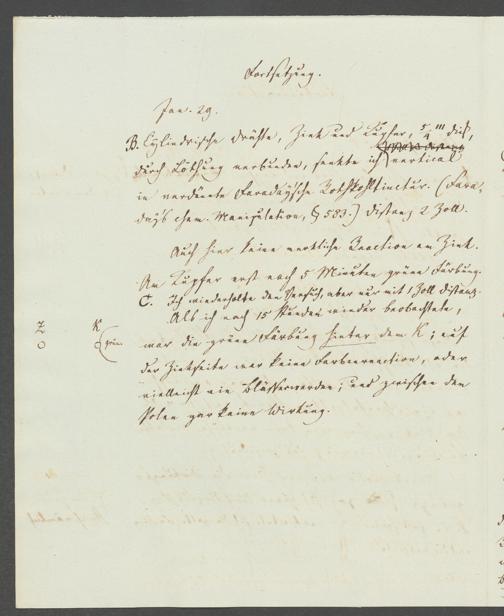 Fortsetzung.
Jan. 29.
B. Cylindrische Drähte, Zink und Kupfer, 5/4''' dick,
durch Löthung verbunden, senkte ich vertical
in verdünnte Faradaysche Rothkohltinctur. (Fara-
day's chem. Manipulation, § 583.) Distanz 2 Zoll.
Auch hier keine merkliche Reaction am Zink.
Am Kupfer erst nach 5 Minuten grüne Färbung.
C. Ich wiederholte den Versuch, aber nur mit 1 Zoll Distanz.
Als ich nach 15 Stunden wieder beobachtete,
Z K
war die grüne Färbung hinter dem K; auf
O grün
der Zinkseite war keine Farbenreaction, oder
vielleicht ein Blässerwerden; und zwischen den
Polen gar keine Wirkung.